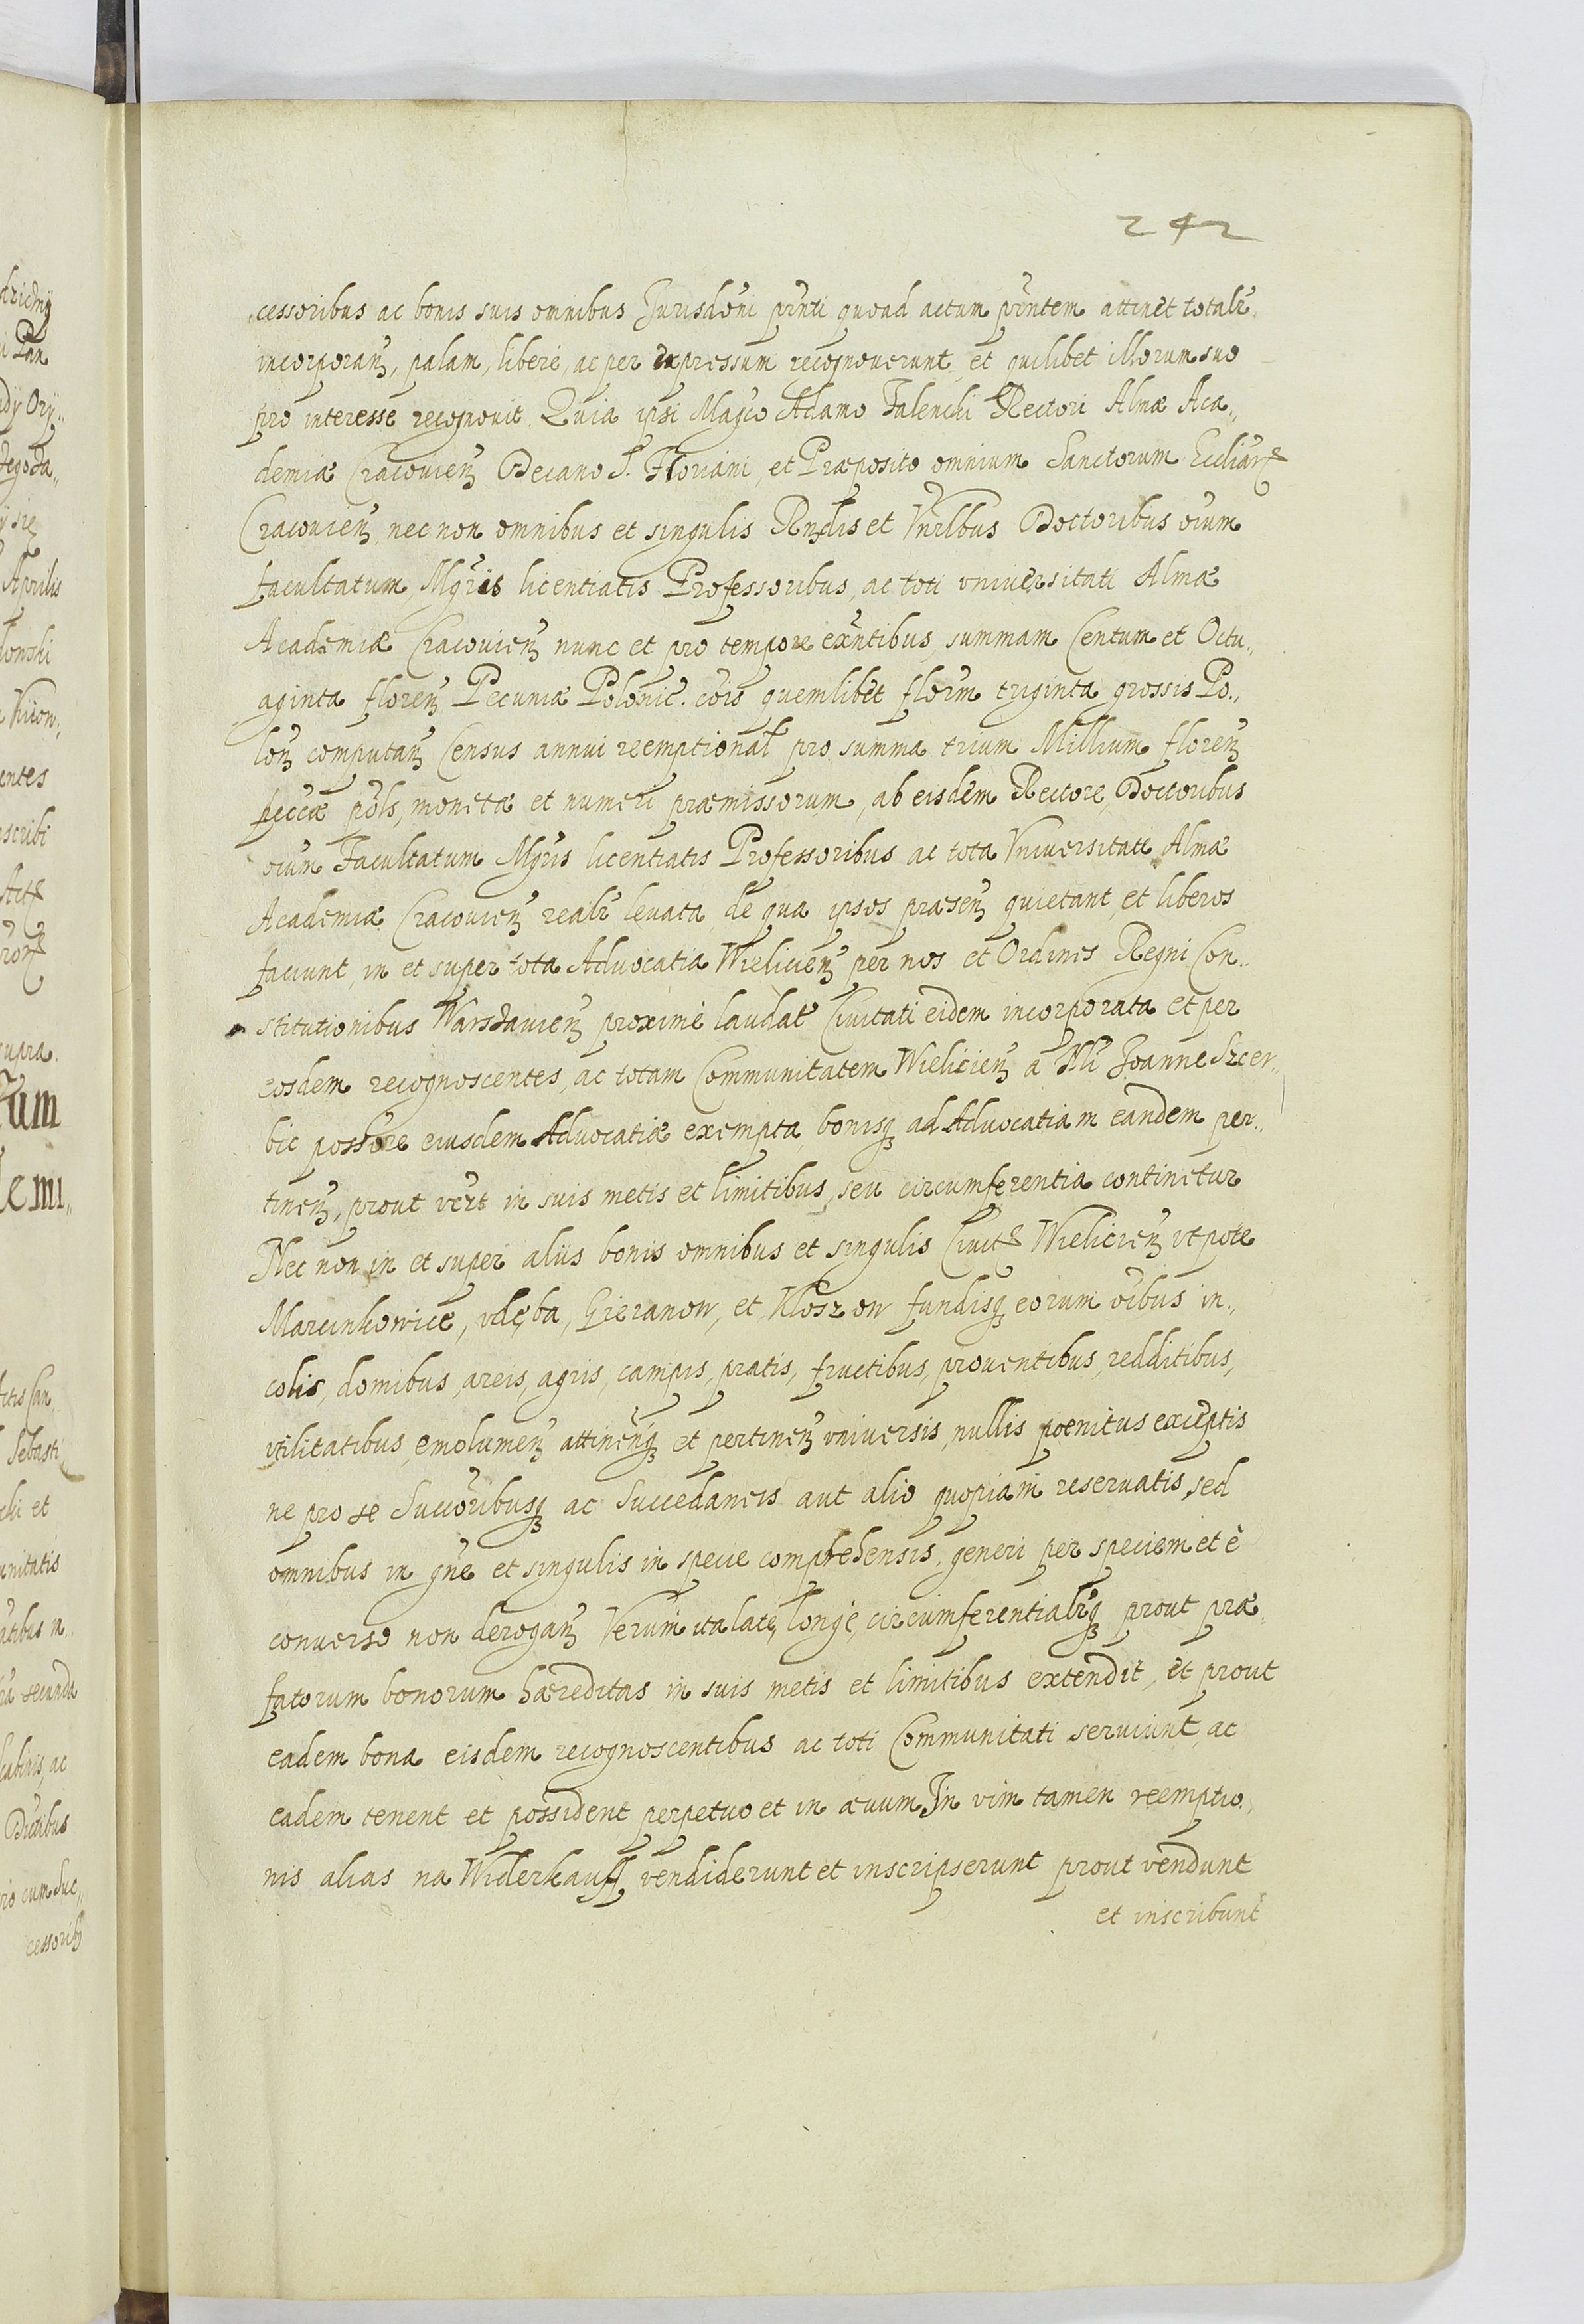 242
cessoribus ac bonis suis omnibus Jurisdõni pñnti quoad actum pñntem attinet totalr̃
incorporañ, palam, liberè, ac per expressum recognoverunt, et quilibet illorum suo
pro interesse recognovit. Quia ipsi Magco Adamo Falencki Rectori Almæ Aca„
demiæ Cracovieñ Decano S. Floriani, et Præposito omnium Sanctorum Eccliar̃
Cracovieñ, nec non omnibus et singulis Rndis et Vnrlbus Doctoribus oium
facultatum, Mgris licentiatis Professoribus, ac toti vniversitati Almæ
Academiæ Cracovieñ nunc et pro tempore exñtibus, summam Centum et Octu„
aginta floreñ Pecuniæ Polonic. cois quemlibet florm triginta grossis Po„
loñ computañ Census annui reemptional pro summa trium Millium floreñ
peccæ pols, monetæ et numeri præmissorum, ab eisdem Rectore, Doctoribus
oium Facultatum Mgris licentiatis Professoribus ac tota Vniversitate Almæ
Academiæ Cracovieñ realr̃ levata, de qua ipsos præseñ quietant, et liberos
faciunt, in et super tota Aduocatia Wielicieñ per nos et Ordines Regni Con„
stitutionibus Warsdavieñ proximè laudat Ciuitati eidem incorporata et per
eosdem recognoscentes, ac totam Communitatem Wielicieñ a Nli Joanne Szcer„
bic possore eiusdem Aduocatiæ exempta, bonisq ad Aduocatiam eandem per„
tineñ, prout vers in suis metis et limitibus, seu circumferentia continetur
Nec non in et super aliis bonis omnibus et singulis Ciuit Wielicieñ vt pote
Marcinkowice, vdęba, Gieranow, et Kloszow fundisq eorum oibus in„
colis, domibus, areis, agris, campis, pratis, fructibus, prouentibus, redditibus,
vtilitatibus, emolumeñ attineñq et pertineñ vniuersis, nullis poenitus exceptis
ne pro se Succoribusq ac Succedaneis aut alio quopiam reseruatis, sed
omnibus in gñe et singulis in specie comprehensis, generi per speciem et è
conuerso non derogañ Verum ita latè, longè, circumferentialr̃q prout præ„
fatorum bonorum hæreditas in suis metis et limitibus extendit, et prout
eadem bona eisdem recognoscentibus ac toti Communitati seruiunt, ac
eadem tenent et possident perpetuo et in æuum, In vim tamen reemptio„
nis alias na Widerkauff vendiderunt et inscripserunt prout vendunt
et inscribunt